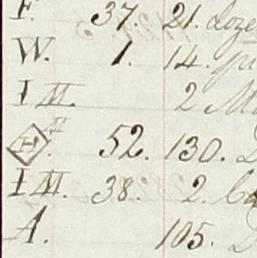 F. 37. 21. doze
W. 1. 14. p
I M. 2 M
52. 130. D
I M. 38. 2. Ca
A. 105. D